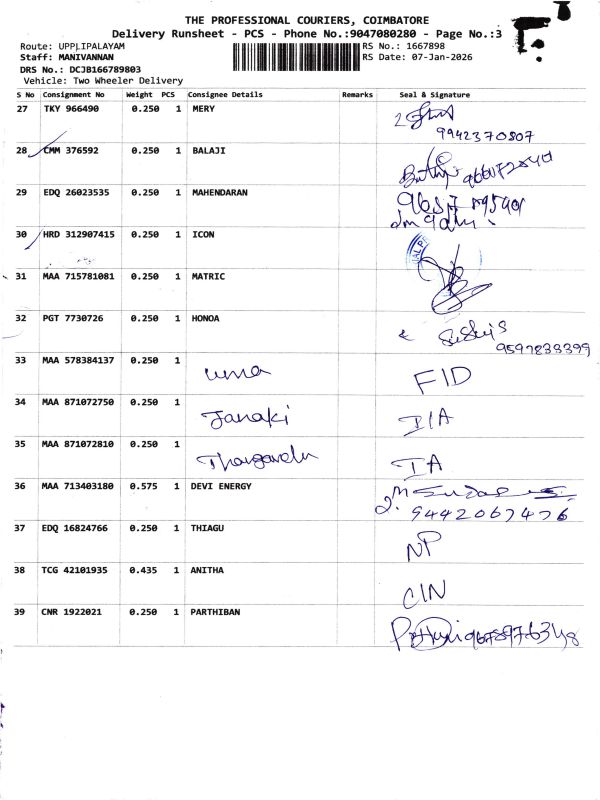 THE PROFESSIONAL COURIERS, COIMBATORE
Delivery Runsheet - PCS - Phone No.:9047080280 - Page No.:3
Route: UPPLIPALAYAM
RS No.: 1667898
Staff: MANIVANNAN
RS Date: 07-Jan-2026
DRS No.: DCJB166789803
Vehicle: Two Wheeler Delivery
S No Consignment No Weight PCS Consignee Details Remarks Seal & Signature
27 TKY 966490 0.250 1 MERY
9942370807
28 CMM 376592 0.250 1 BALAJI
29 EDQ 26023535 0.250 1 MAHENDARAN
30 HRD 312907415 0.250 1 ICON
31 MAA 715781081 0.250 1 MATRIC
32 PGT 7730726 0.250 1 HONOA
9597833399
33 MAA 578384137 0.250 1 uma FID
34 MAA 871072750 0.250 1 Janaki I/A
35 MAA 871072810 0.250 1 IA
36 MAA 713403180 0.575 1 DEVI ENERGY
9442067476
37 EDQ 16824766 0.250 1 THIAGU NP
38 TCG 42101935 0.435 1 ANITHA CIN
39 CNR 1922021 0.250 1 PARTHIBAN